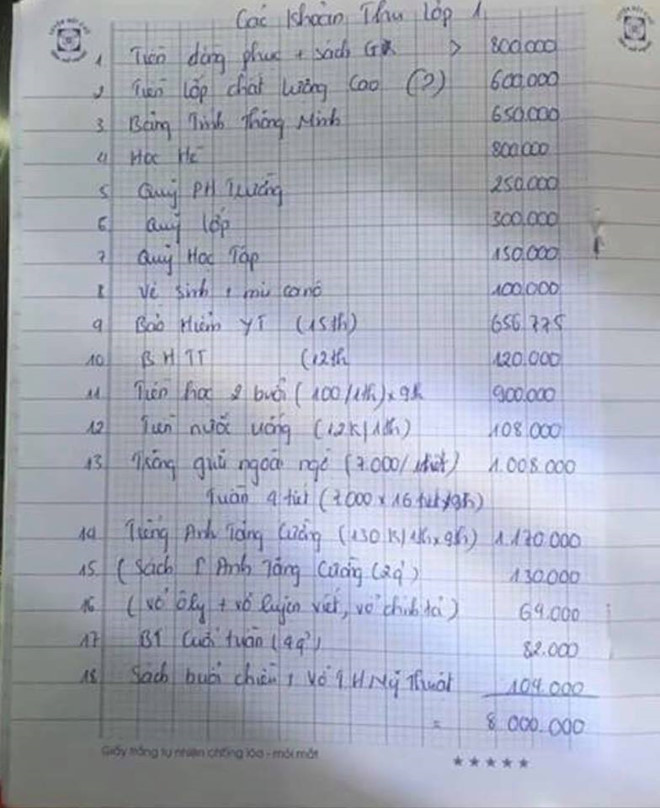 Các Khoản Thu Lớp 1
1 Tiền đồng phục + sách GK > 800.000
2 Tiền lớp chất lượng cao (?) 600.000
3 Bảng Tính Thông Minh 650.000
4 Học Hè 800.000
5 Quỹ PH Trường 250.000
6 Quỹ lớp 300.000
7 Quỹ Học Tập 150.000
8 Vệ sinh + mũ ca nô 100.000
9 Bảo Hiểm YT (15th) 656.775
10 BHTT (12th 120.000
11 Tiền học 2 buổi (100/1th) x 9th 900.000
12 Tiền nước uống (12K/1th) 108.000
13 Trông giữ ngoài ngờ (7.000/1tiết) 1.008.000
Tuần 4 tiết (7.000 x 16 tiết x 9th)
14 Tiếng Anh Tăng Cường (130K/1th x 9th) 1.170.000
15 (Sách T Anh Tăng Cường (2q') 130.000
16 (vở ôly + vở luyện viết, vở chính tả) 69.000
17 BT Cuối tuần (4q') 82.000
18 Sách buổi chiều, vở TH Mỹ Thuật 104.000
= 8.000.000
Giấy trắng tự nhiên chống lóa - mỏi mắt
★★★★★